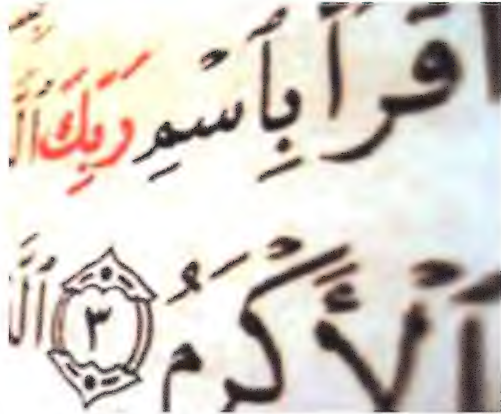 ٱقۡرَأۡ بِٱسۡمِ رَبِّكَ
ٱلۡأَكۡرَمُ ٣